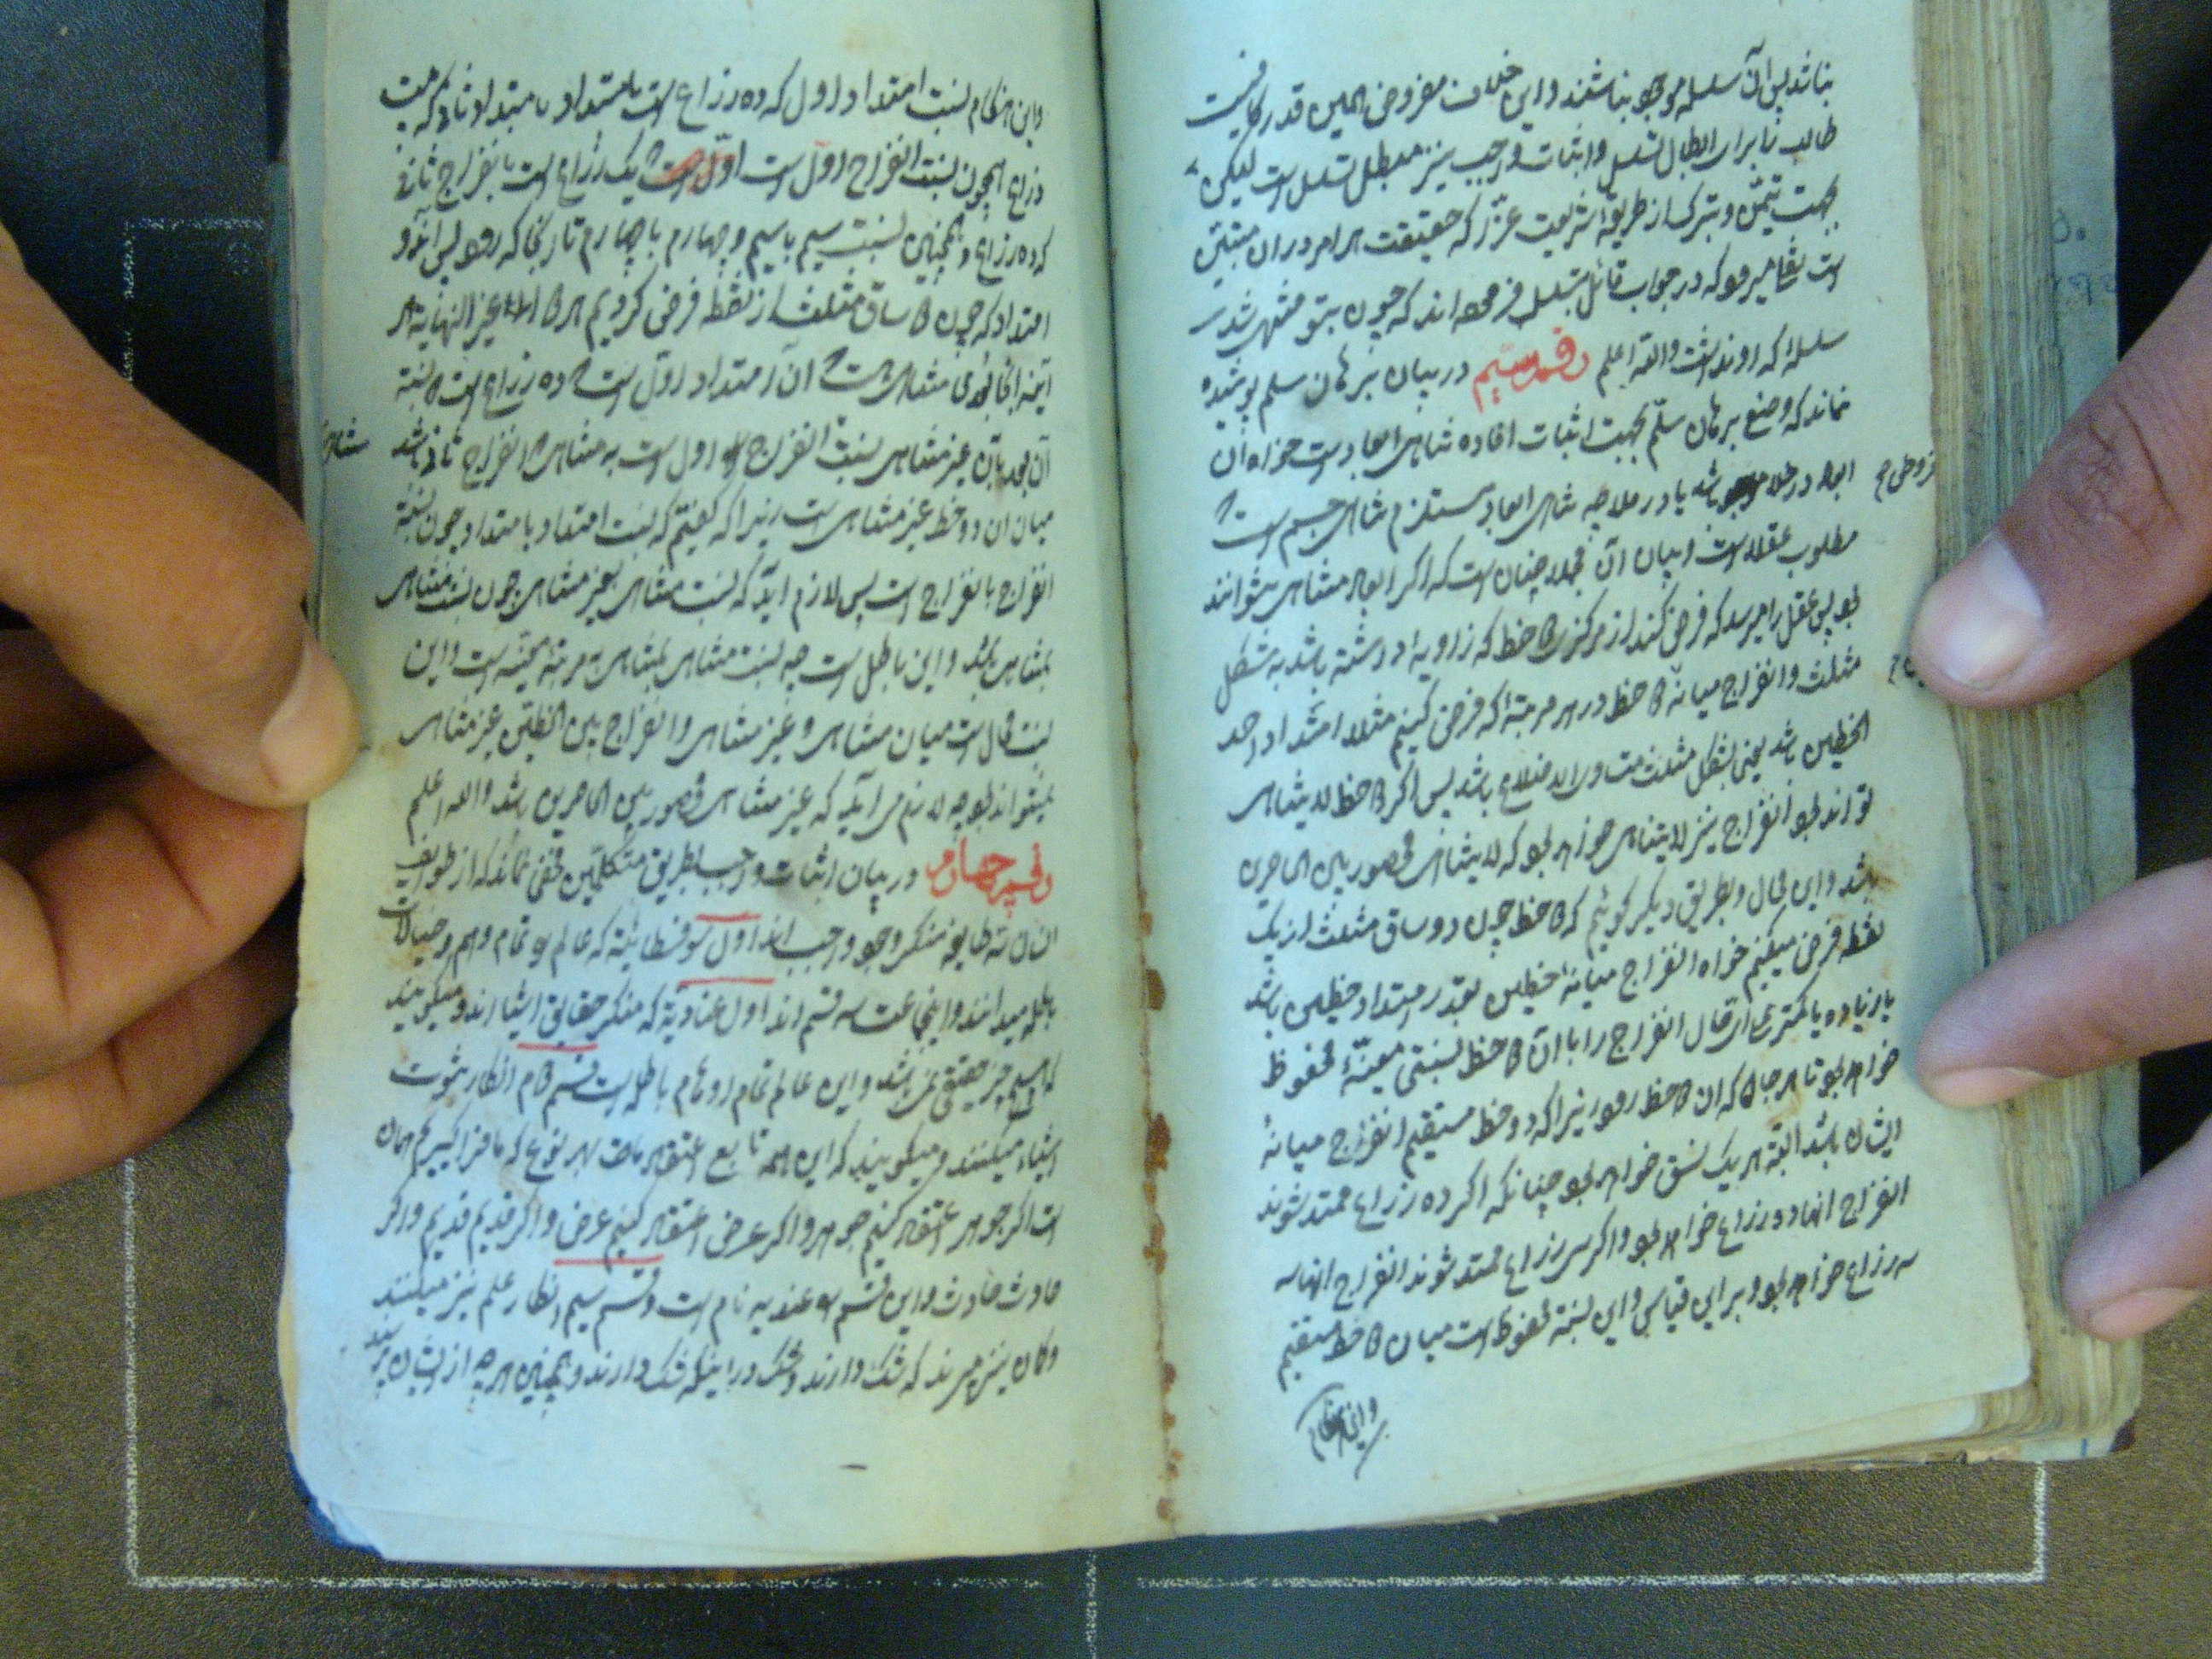 نباشد پس آن سلسله موجود نباشند و این خلاف مفروض همین قدر کافیست
طالب را برای ابطال تسلسل و اثبات واجب نیز مبطل تسلسل است لیکن
بجهت تیمن و تبرک از طریقه شریعت غرّا که حقیقت هر امر در آن مبتنی
است نقل میرود که در جواب قائل تسلسل فرموده اند که چون بتو منتهی شد
سلسله که او نداشت والله اعلم رقم سیم در بیان برهان سلم پوشیده
نماند که وضع برهان سلّم بجهت اثبات افاده تناهی ابعاد است خواه آن
ابعاد در خلا موجود باشد یا در ملا چه تناهی ابعاد مستلزم تناهی جسم است
مطلوب عقلا است و بیان آن مجملا چنان است که اگر ابعاد متناهی نتوانند
بود پس عقل را میرسد که فرض کند از مرکزی دو خط که زاویهٔ داشته باشد به شکل
مثلث و انفراج میانه دو خط در هر مرتبه که فرض کنیم مثلا امتداد احد
الخطین باشد یعنی بشکل مثلث متساوی الاضلاع باشد پس اگر دو خط لایتناهی
تواند بود انفراج نیز لایتناهی خواهد بود که لایتناهی محصور بین الحاصرین
باشد و این محال و بطریق دیگر گوئیم که دو خط چون دو ساق مثلث از یک
نقطه فرض میکنیم خواه انفراج میانهٔ خطین بقدر امتداد خطین باشد
یا زیاده یا کمتر علی ای حال انفراج را با آن دو خط نسبتی معینهٔ محفوظ
خواهد بود تا هر جا که آن دو خط رود زیرا که دو خط مستقیم انفراج میانهٔ
ایشان باشد البته بر یک نسق خواهد بود چنانکه اگر ده ذراع ممتد شوند
انفراج انها دو ذراع خواهد بود و اگر سی ذراع ممتد شوند انفراج انها سه
سه ذراع خواهد بود و بر این قیاس و این نسبة محفوظ است میان دو خط مستقیم
و این هنگام
و این هنگام نسبت امتداد اول که ده ذراع است با امتداد ثانی که بیست
ذراع همچون نسبت انفراج اول است که یک ذراع است با انفراج ثانی
که ده ذراع و همچنین نسبت سیم با سیم و چهارم با چهارم تا آنجا که رود پس آن دو
امتداد که چون دو ساق مثلث از نقطه فرض کردیم هر گاه الی غیر النهایة
متناهی است آن امتداد اول است که ده ذراع است نسبة
آن بجد بآن غیر متناهی نسبت انفراج اول است به متناهی انفراج ثانی باشد
میان آن دو خط غیر متناهی است زیرا که گفتیم که نسبت امتداد با امتداد چون نسبة
انفراج با انفراج است پس لازم آید که نسبت متناهی بغیر متناهی چون نسبت متناهی
بمتناهی باشد و این باطل است چه نسبت متناهی بمتناهی به مرتبهٔ معینه است و این
نسبت محال است میان متناهی و غیر متناهی و انفراج بین الخطین غیر متناهی
نمیتواند بود چه لازم می آید که غیر متناهی محصور بین الحاصرین باشد والله اعلم
رقم چهارم در بیان اثبات واجب بطریق متکلمین مخفی نماند که از طوایف
انسان سه طایفه منکر وجود واجب اند اول سوفسطائیه که عالم را تمام وهم و خیالات
باطله میدانند و این جماعت سه قسم اند اول عنادیّه که منکر حقایق اشیا اند و میگویند
که هیچ چیز حقیقی نمی باشد و این عالم تمام اوهام باطله است قسم دوم انکار ثبوت
اشیاء میکنند و میگویند که این همه تابع اعتقاد ماست بهر نوع که ما فرا گیریم همان
است اگر جوهر اعتقاد کنیم جوهر و اگر عرض اعتقاد کنیم عرض و اگر قدیم قدیم و اگر
حادث حادث و این قسم را عندیه نام است و قسم سیم انکار علم نیز میکنند
و گمان نیز میبرند که شک دارند و شک در اینکه شک دارند و همچنین هر چه از ایشان پرسند